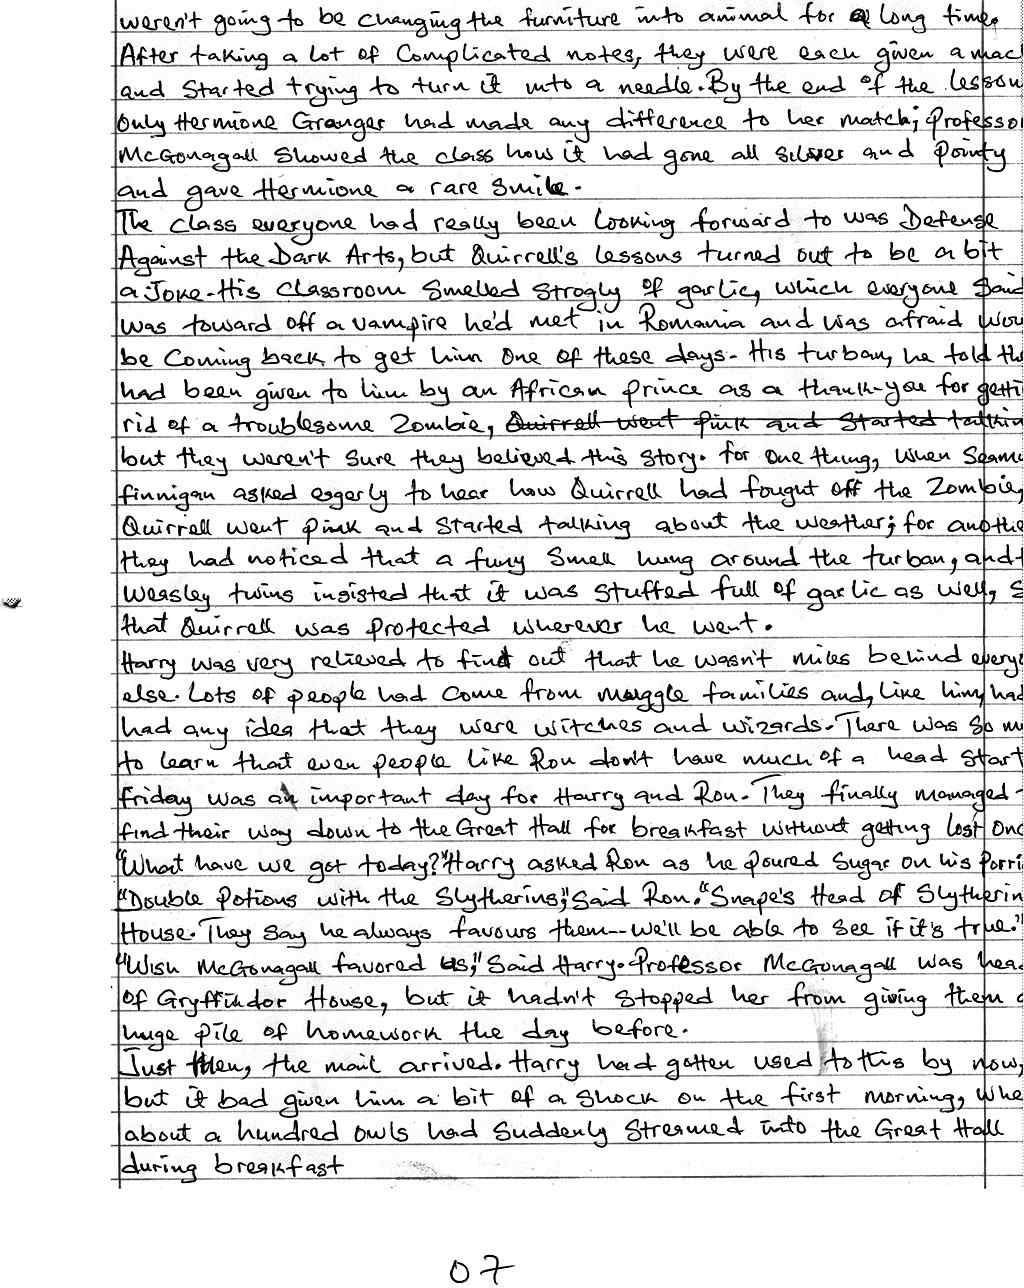 weren't going to be changing the furniture into animal for a long time.
After taking a lot of Complicated notes, they were each given a mac
and Started trying to turn it into a needle. By the end of the lesson
Only Hermione Granger had made any difference to her match; Professor
McGonagall Showed the class how it had gone all silver and Pointy
and gave Hermione a rare Smile.
The class everyone had really been looking forward to was Defense
Against the Dark Arts, but Quirrell's lessons turned out to be a bit
a Joke. His classroom Smelled Strogly of garlic, which everyone Said
was toward off a vampire he'd met in Romania and was afraid wou
be Coming back to get him one of these days. His turban, he told th
had been given to him by an African prince as a thank-you for getti
rid of a troublesome Zombie, Quirrell went pink and Started talkin
but they weren't Sure they believed this Story. for one thing, when Seam
finnigan asked eagerly to hear how Quirrell had fought off the Zombie,
Quirrell went pink and Started talking about the weather; for anothe
they had noticed that a funy Smell hung around the turban, and
Weasley twins insisted that it was Stuffed full of garlic as well, S
that Quirrell was Protected wherever he went.
Harry was very relieved to find out that he wasn't miles behind every
else. Lots of people had come from muggle families and, like him, had
had any idea that they were witches and wizards. There was So m
to learn that even people like Ron don't have much of a head Start
friday was an important day for Harry and Ron. They finally managed
find their way down to the Great Hall for breakfast without getting lost Onc
"What have we got today?" Harry asked Ron as he poured Sugar on his Porri
"Double Potions with the Slytherins," Said Ron. "Snape's Head of Slytherin
House. They Say he always favours them--we'll be able to See if it's true."
"Wish McGonagall favored us," Said Harry. Professor McGonagall was hea
of Gryffindor House, but it hadn't Stopped her from giving them a
huge pile of homework the day before.
Just then, the mail arrived. Harry had gotten used to this by now,
but it bad given him a bit of a Shock on the first morning, whe
about a hundred Owls had Suddenly Streamed into the Great Hall
during breakfast
07